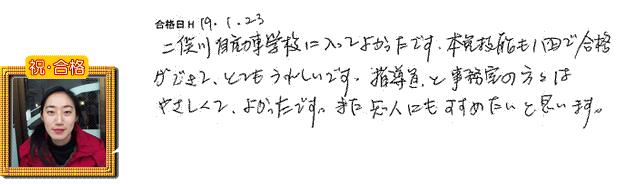 合格日H 19.1.23
二俣川自動車学校に入ってよかったです。本免技能も1回で合格
ができて、とてもうれしいです。指導員と事務室の方々は
やさしくて、よかったです。また知人にもすすめたいと思います。
祝・合格